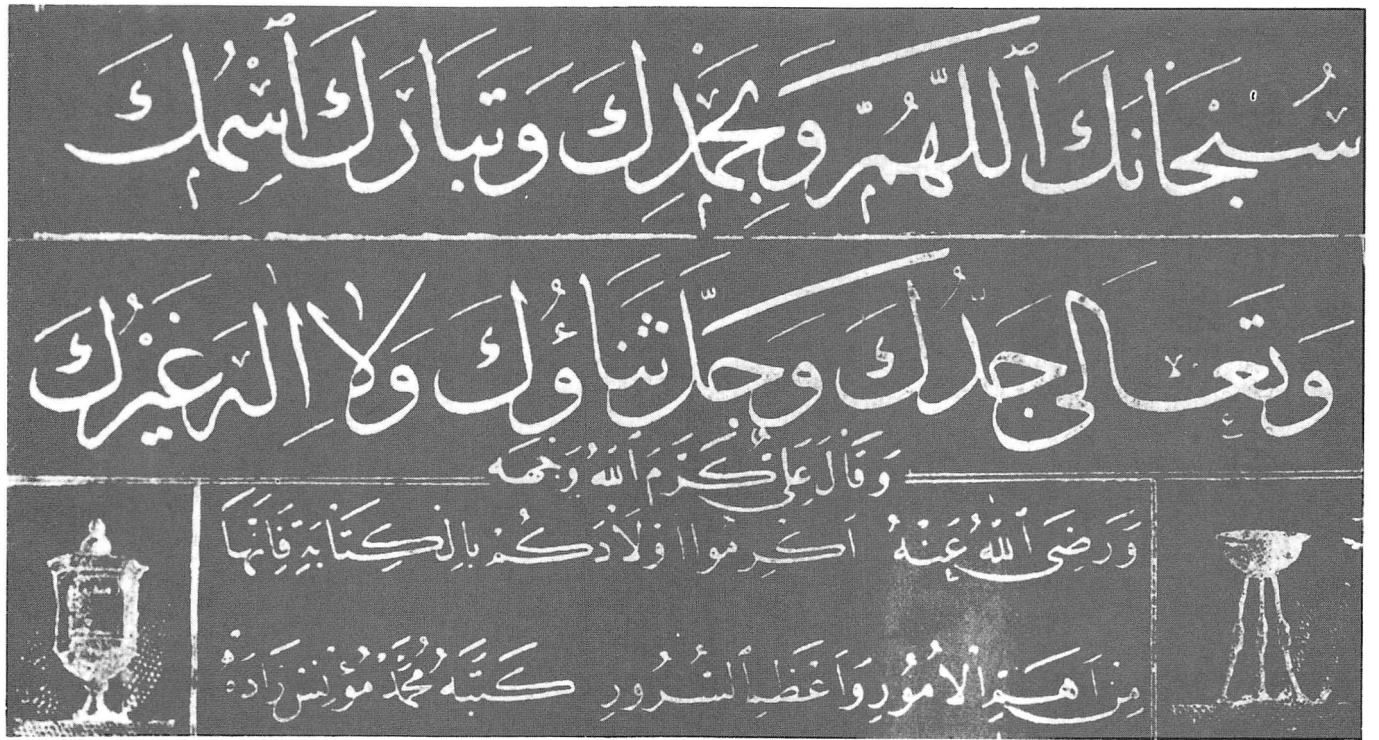 سُبْحَانَكَ ٱللَّهُمَّ وَبِحَمْدِكَ وَتَبَارَكَ ٱسْمُكَ
وَتَعَالَى جَدُّكَ وَجَلَّ ثَنَاؤُكَ وَلَا اِلٰهَ غَيْرُكَ
وَقَالَ عَلِيٌّ كَرَّمَ ٱللهُ وَجْهَه
وَرَضِىَ ٱللهُ عَنْهُ اَكْرِمُوا اَوْلَادَكُمْ بِالْكِتَابَةِ فَاِنَّهَا
مِنْ اَهَمِّ الْاُمُورِ وَاَعْظَمِ السُّرُورِ كَتَبَهُ مُحَمَّدْ مُؤْنِسْ زَادَهْ